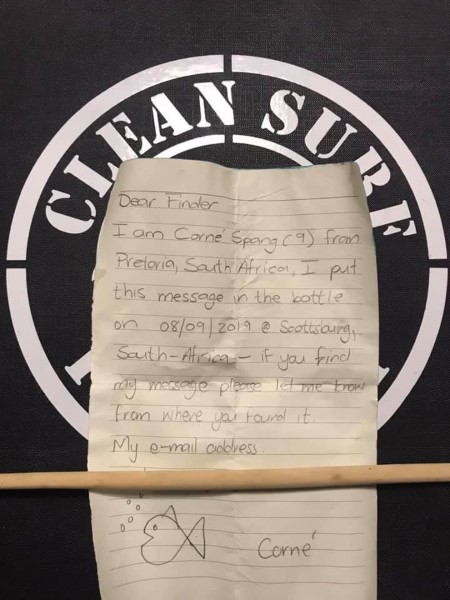 CLEAN SURF
Dear Finder
I am Corné Spang (9) from
Pretoria, South Africa, I put
this message in the bottle
on 08/09/2019 @ Scottsburg,
South-Africa - if you find
my message please let me know
from where you found it.
My e-mail address.
Corné